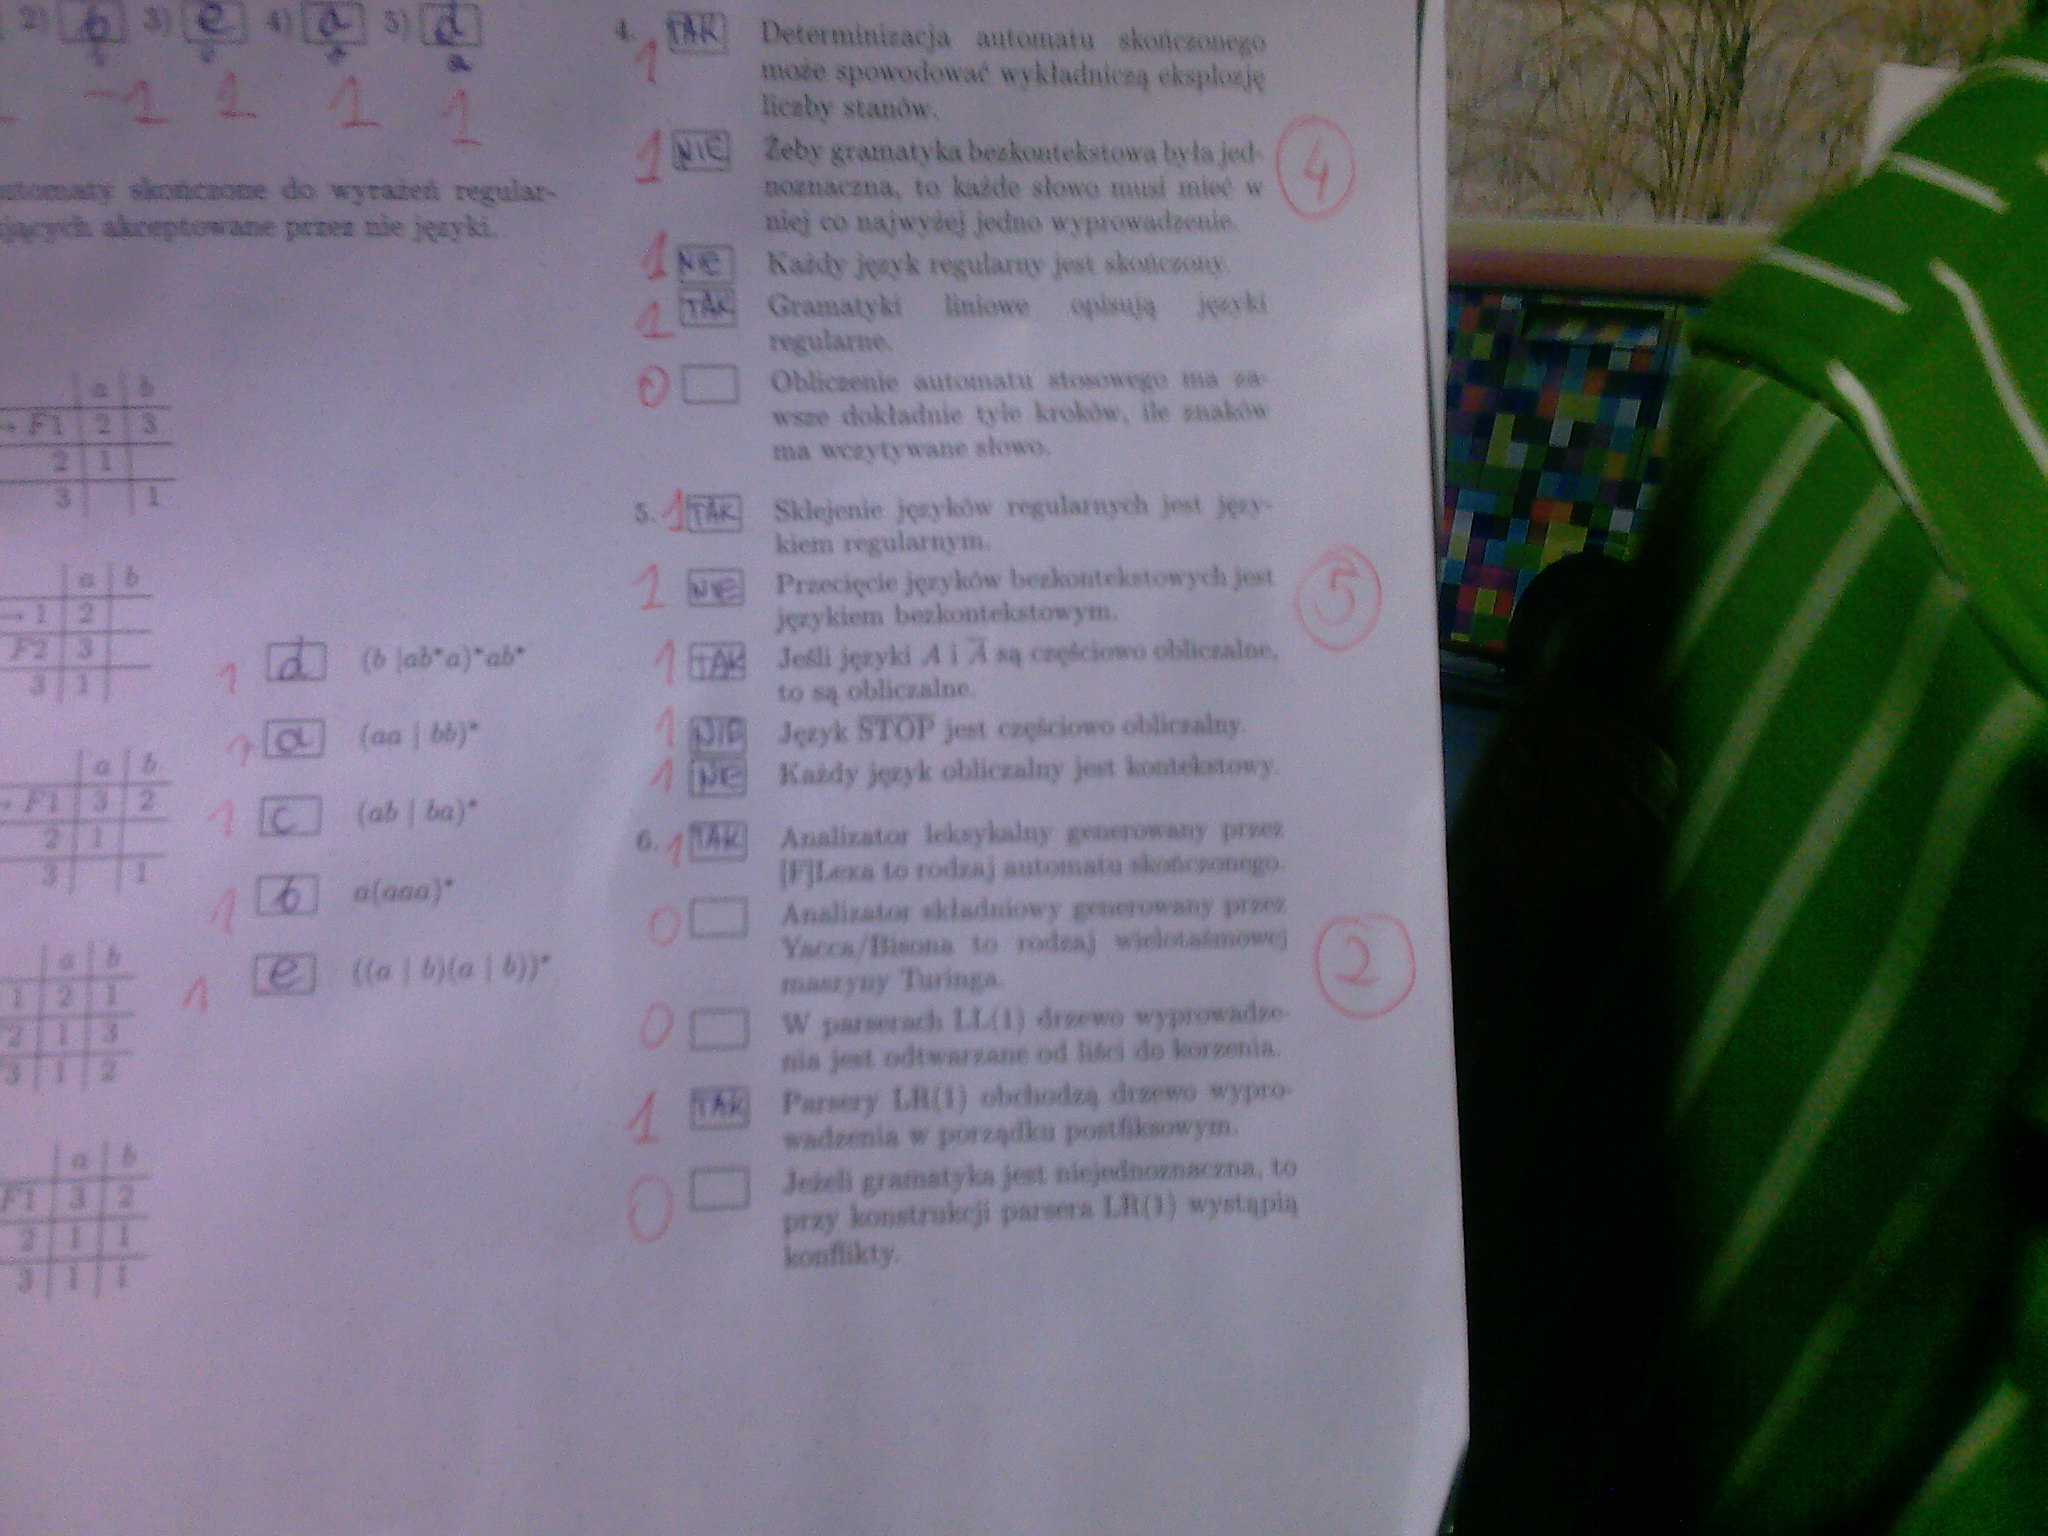 2) b 3) e 4) a 5) d
a
-1 1 1 1
automaty skończone do wyrażeń regular-
jących akceptowane przez nie języki.
a b
→ F1 2 3
2 1
3 1
a b
→ 1 2
F2 3
3 1
a b
→ F1 3 2
2 1
3 1
a b
1 2 1
2 1 3
3 1 2
a b
F1 3 2
2 1 1
3 1 1
1 d (b |ab*a)*ab*
1 a (aa | bb)*
1 c (ab | ba)*
1 b a(aaa)*
1 e ((a | b)(a | b))*
4. TAK Determinizacja automatu skończonego
1 może spowodować wykładniczą eksplozję
liczby stanów.
1 NIE Żeby gramatyka bezkontekstowa była jed-
noznaczna, to każde słowo musi mieć w
niej co najwyżej jedno wyprowadzenie.
4
1 NIE Każdy język regularny jest skończony.
1 TAK Gramatyki liniowe opisują języki
regularne.
0 Obliczenie automatu stosowego ma za-
wsze dokładnie tyle kroków, ile znaków
ma wczytywane słowo.
5. 1 TAK Sklejenie języków regularnych jest języ-
kiem regularnym.
1 NIE Przecięcie języków bezkontekstowych jest
językiem bezkontekstowym.
5
1 TAK Jeśli języki A i A̅ są częściowo obliczalne,
to są obliczalne.
1 NIE Język S̅T̅O̅P̅ jest częściowo obliczalny.
1 NIE Każdy język obliczalny jest kontekstowy.
6. 1 TAK Analizator leksykalny generowany przez
[F]Lexa to rodzaj automatu skończonego.
0 Analizator składniowy generowany przez
Yacca/Bisona to rodzaj wielotaśmowej
maszyny Turinga.
2
0 W parserach LL(1) drzewo wyprowadze-
nia jest odtwarzane od liści do korzenia.
1 TAK Parsery LR(1) obchodzą drzewo wypro-
wadzenia w porządku postfiksowym.
0 Jeżeli gramatyka jest niejednoznaczna, to
przy konstrukcji parsera LR(1) wystąpią
konflikty.